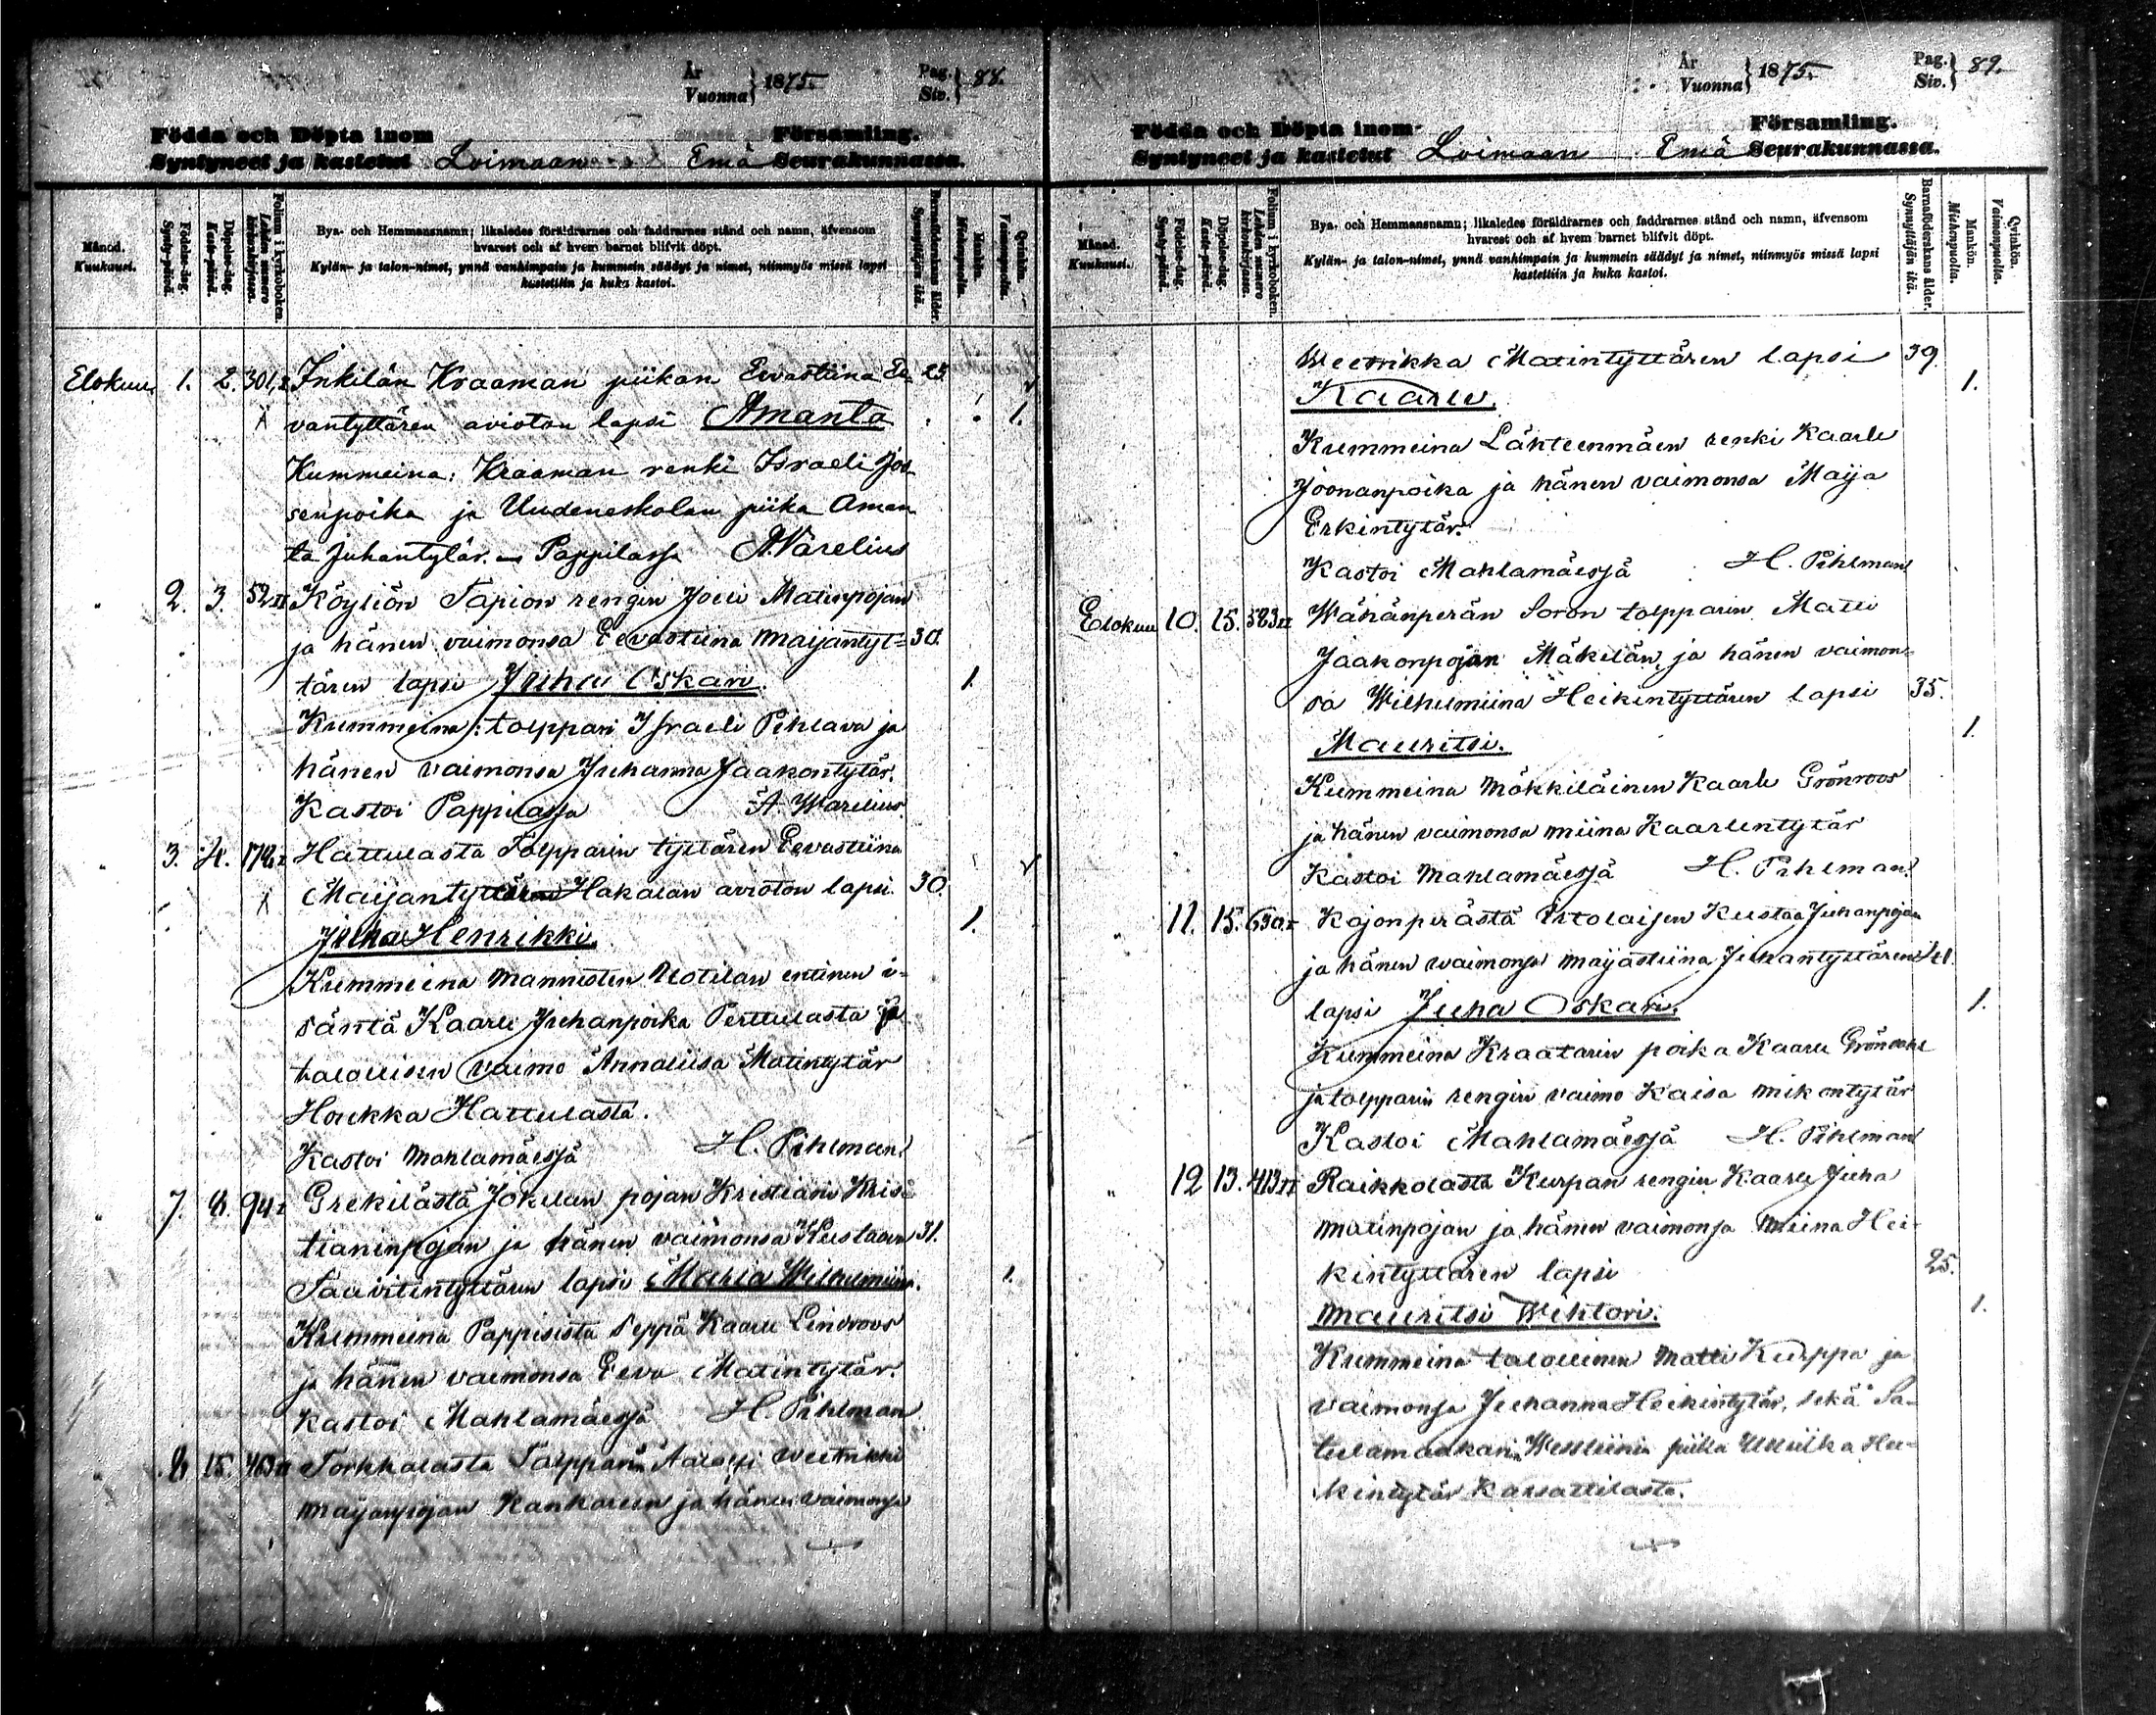 År
Vuonna } 1875.
Pag.
Siv. } 88.
Födda och Döpta inom Församling.
Syntyneet ja kastetut Loimaan Emä Seurakunnassa.
Månad.
Kuukausi.
Födelse-dag.
Synty-päivä.
Döpelse-dag.
Kaste-päivä.
Folium i kyrkoboken.
Lehden numero kirkonkirjassa.
Bya- och Hemmansnamn; likaledes föräldrarnes och faddrarnes stånd och namn, äfvensom
hvarest och af hvem barnet blifvit döpt.
Kylän- ja talon-nimet, ynnä vanhimpain ja kummein säädyt ja nimet, niinmyös missä lapsi
kastettiin ja kuka kastoi.
Barnaföderskans ålder.
Synnyttäjän ikä.
Mankön.
Miehenpuolia.
Qvinkön.
Vaimonpuolia.
Elokuu 1. 2. 301,I Inkilän Kraaman piikan Evastiina Ee 25
vantyttären avioton lapsi Amanta 1.
Kummeina: Kraaman renki Israeli Joo
senpoika ja Uudeneskolan piika Aman
ta Juhantytär. – Pappilassa A. Varelius
" 2. 3. 52 II Köyliön Tapion rengin Joeli Matinpojan
ja hänen vaimonsa Eevastiina Maijantyt= 30.
tären lapsi Juha Oskari. 1.
Kummeina: tolppari Israeli Pihlava ja
hänen vaimonsa Juhanna Jaakontytär.
Kastoi Pappilassa A. Warelius.
" 3. 4. 172 I Hattulasta Tolpparin tyttären Eevastiina
Maijantyttären Hakalan avioton lapsi. 30.
Juha Henrikki. 1.
Kummeina Mannisten Uotilan entinen i=
säntä Kaarle Juhanpoika Perttulasta ja
talollisen vaimo Annaliisa Matintytär
Houkka Hattulasta.
Kastoi Mahlamäessä H. Pihlman
" 7. 8. 94 I Grekilästä Jokelan pojan Kristiani Kris=
tianinpojan ja hänen vaimonsa Kustaava 31.
Taavitintyttären lapsi Maria Wilhelmiina. 1.
Kummeina Pappisista Seppä Kaarle Lindroos
ja hänen vaimonsa Eeva Matintytär.
Kastoi Mahlamäessä H. Pihlman
" 8. 15. 463 II Torkkalasta Tolpparin Aadolfi Weetrikki
Maijanpojan Kankareen ja hänen vaimonsa
År
Vuonna } 1875.
Pag.
Siv. } 89.
Födda och Döpta inom Församling.
Syntyneet ja kastetut Loimaan Emä Seurakunnassa.
Månad.
Kuukausi.
Födelse-dag.
Synty-päivä.
Döpelse-dag.
Kaste-päivä.
Folium i kyrkoboken.
Lehden numero kirkonkirjassa.
Bya- och Hemmansnamn; likaledes föräldrarnes och faddrarnes stånd och namn, äfvensom
hvarest och af hvem barnet blifvit döpt.
Kylän- ja talon-nimet, ynnä vanhimpain ja kummein säädyt ja nimet, niinmyös missä lapsi
kastettiin ja kuka kastoi.
Barnaföderskans ålder.
Synnyttäjän ikä.
Mankön.
Miehenpuolia.
Qvinkön.
Vaimonpuolia.
Weetrikka Matintyttären lapsi 39.
Kaarle. 1.
Kummeina Lähteenmäen renki Kaarle
Joonanpoika ja hänen vaimonsa Maija
Erkintytär.
Kastoi Mahlamäessä H. Pihlman
Elokuu 10. 15. 583 II Wähänperän Soron tolpparin Matti
Jaakonpojan Mäkilän, ja hänen vaimon=
sa Wilhelmiina Heikintyttären lapsi 35.
Mauritsi. 1.
Kummeina Mökkiläinen Kaarle Grönroos
ja hänen vaimonsa Miina Kaarlentytär
Kastoi Mahlamäessä H. Pihlman.
" 11. 15. 630 I Kojonperästä Kustaa Juhanpojan
ja hänen vaimonsa Maijastiina Juhantyttären 41.
lapsi Juha Oskari. 1.
Kummeina Kraatarin poika Kaarle
ja tolpparin rengin vaimo Kaisa Mikontytär
Kastoi Mahlamäessä H. Pihlman
" 12 13. 413 II Raikkolasta Kurpan rengin Kaarle Juha
Matinpojan ja hänen vaimonsa Miina Hei=
kintyttären lapsi 25.
Mauritsi Wihtori. 1.
Kummeina talollinen Matti Kurppa ja
vaimonsa Juhanna Heikintytär, sekä Sa=
tulamaakarin Wessliinin piika Ulriika Hei=
kintytär Karsattilasta.